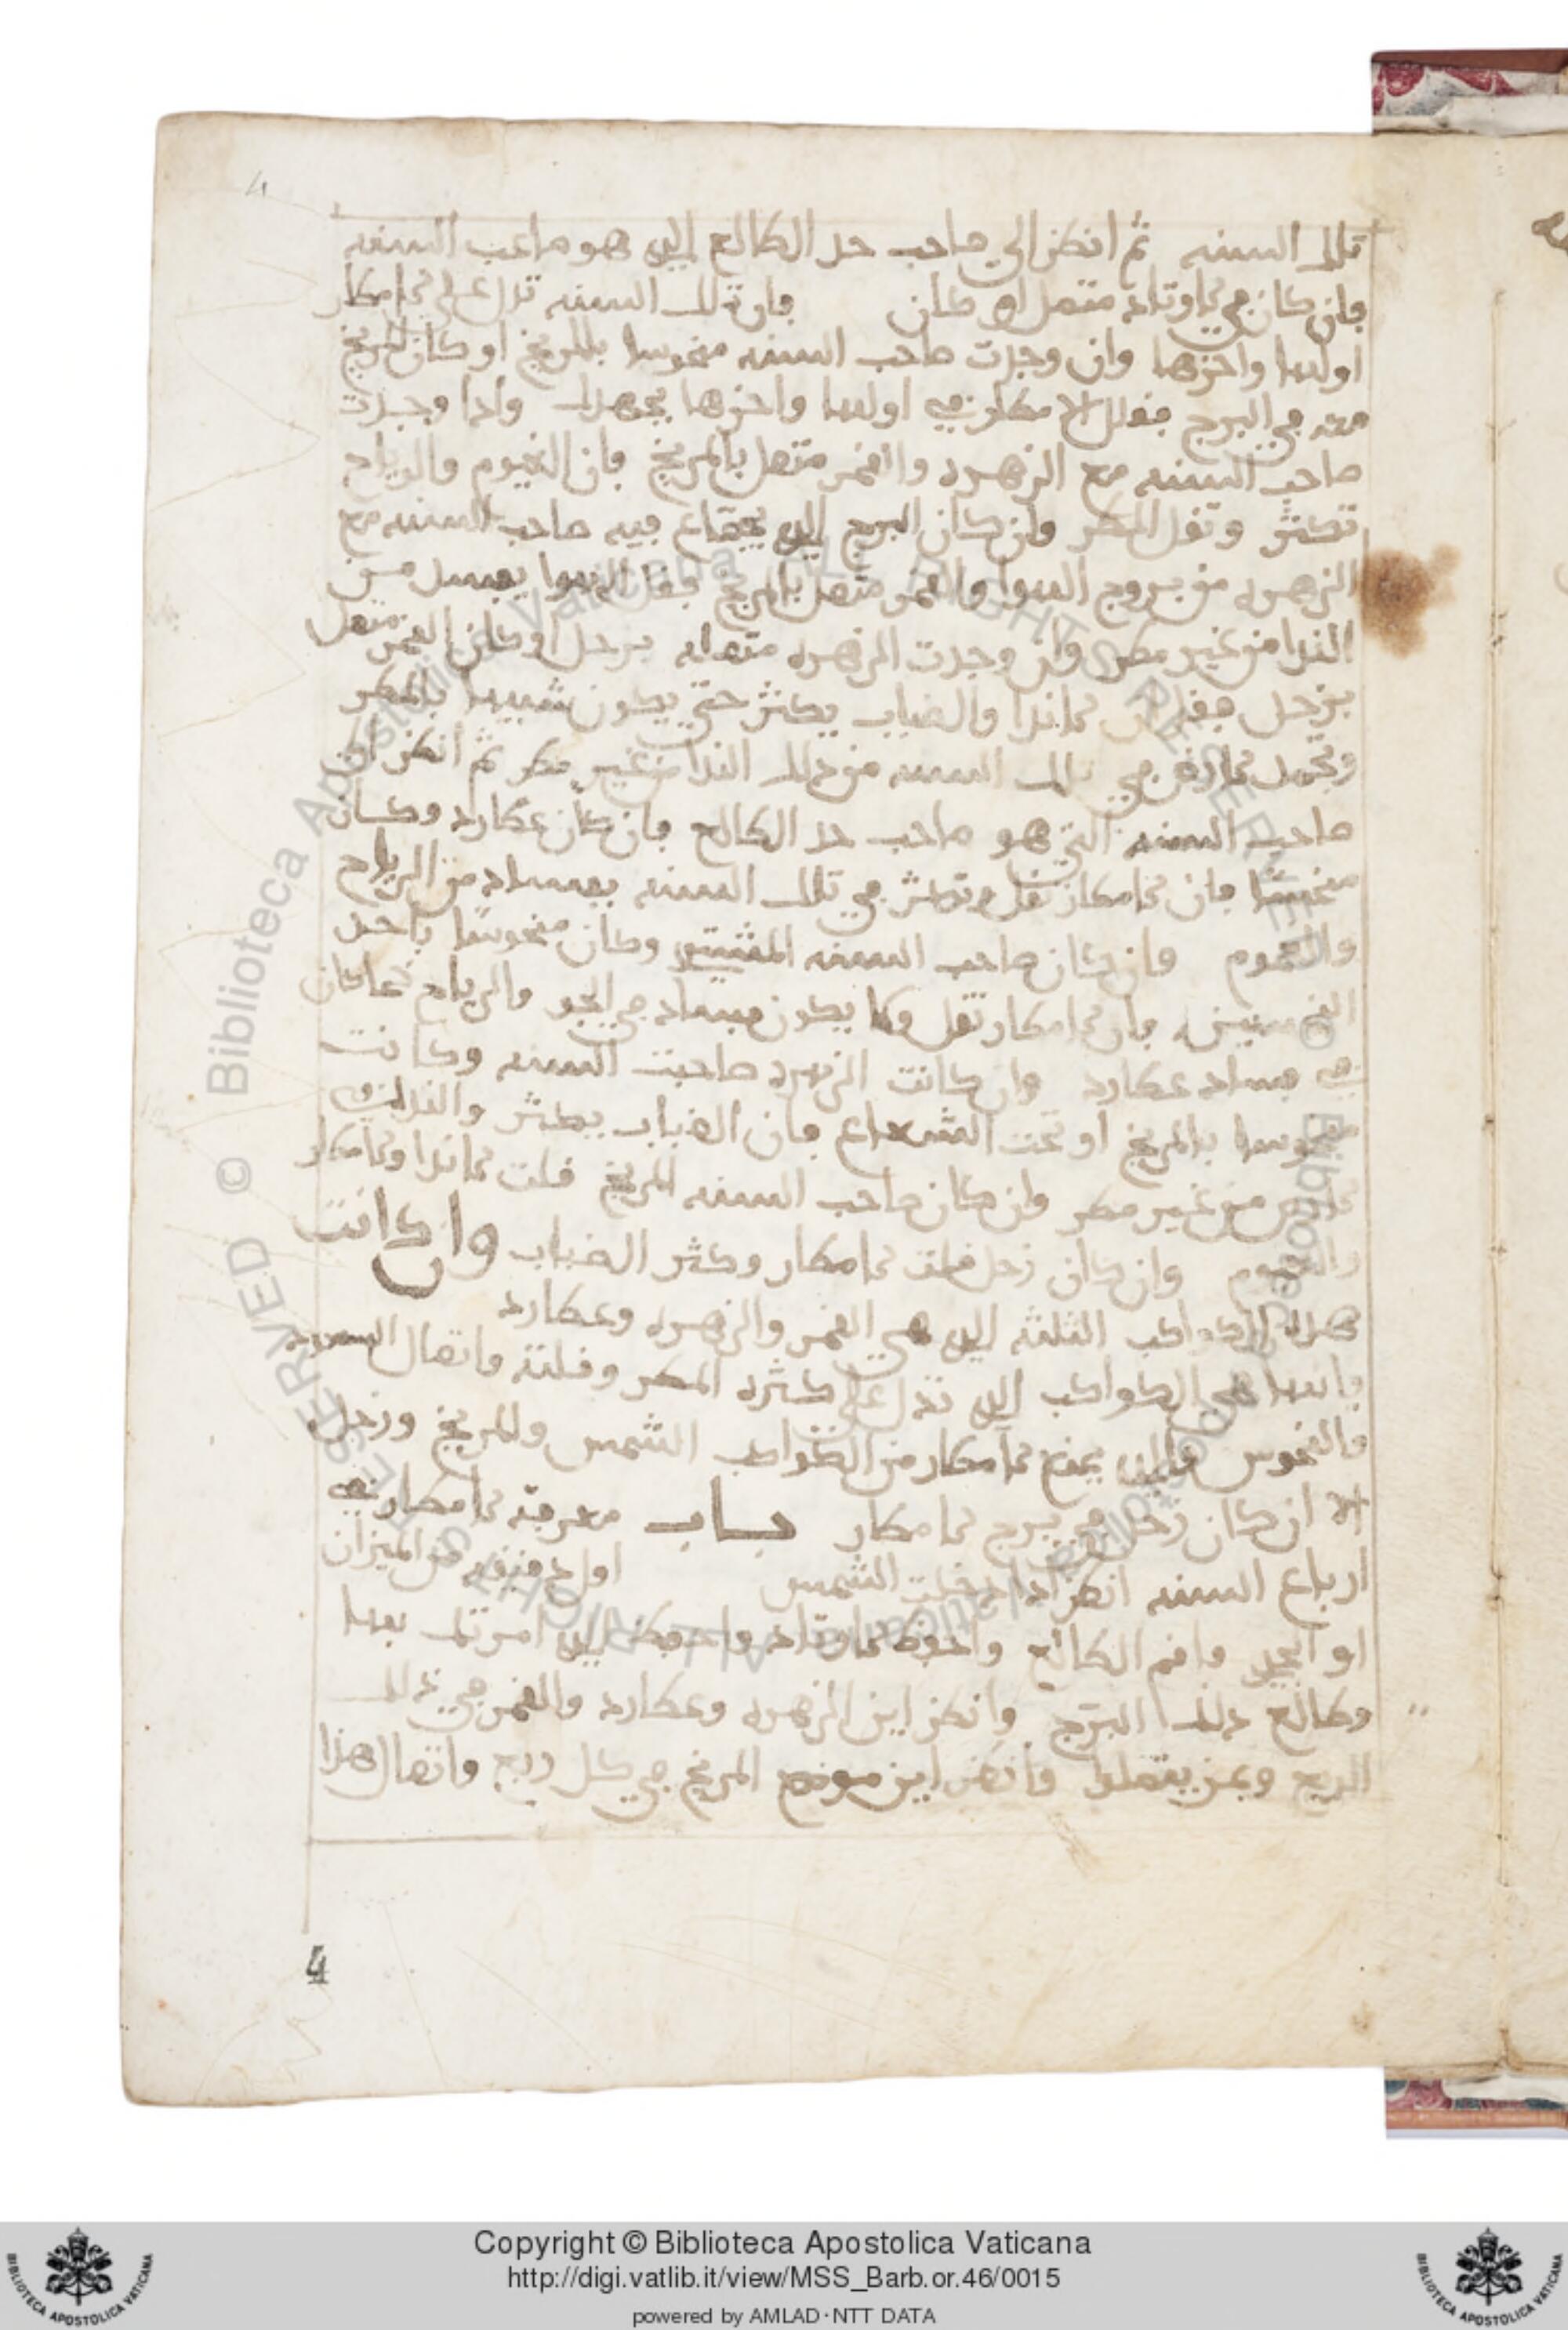 4
تلك السنه ثم انظر الى صاحب حد الطالع الذي هو صاحب السنه
فان كان في الاوتاد متصل او كان فان تلك السنه تدل على الامطار
اولها واخرها وان وجدت صاحب السنه منحوسا بالمريخ او كان المريخ
معه في البرج فقل الامطار في اولها واخرها واذا وجدت
صاحب السنه مع الزهره والقمر متصل بالمريخ فان الغيوم والرياح
تكثر وتقل المطر وان كان البرج الذي فيه صاحب السنه مع
الزهره من بروج الهوا والقمر متصل بالمريخ فقل الهوا يفسد من
الندا من غير مطر وان وجدت الزهره متصله بزحل او كان القمر متصل
بزحل الاندا والضباب يكثر حتى يكون شبيها بالمطر
في تلك السنه من ذلك الندا من غير مطر ثم انظر الى
صاحب السنه التي هو صاحب حد الطالع فان كان عطارد وكان
منحسا فان الامطار تقل وتكثر في تلك السنه بفساد من الرياح
والغيوم وان كان صاحب السنه المشتري وكان منحوسا باحد
النحسين فان الامطار تقل ولا يكون فساد في الجو والرياح كما كان
في فساد عطارد وان كانت الزهره صاحبت السنه وكانت
منحوسا بالمريخ او تحت الشعاع فان الضباب يكثر والندا في
الارض من غير مطر وان كان صاحب السنه المريخ قلت الاندا والامطار
والغيوم وان كان زحل قلت الامطار وكثر الضباب وان كانت
هذه الكواكب الثلثه الذي هي القمر والزهره وعطارد
فانها هي الكواكب الذي تدل على كثره المطر وقلته واتصال السعود
والنحوس والذي يمنع الامطار من الكواكب الشمس والمريخ وزحل
الا ان كان زحل في برج الامطار باب معرفة الامطار في
ارباع السنه انظر اذا دخلت الشمس اول دقيقه من الميزان
او الجدي واقم الطالع والاوتاد واحفظ الذي امرتك بها
وطالع ذلك البرج وانظر اين الزهره وعطارد والقمر في ذلك
الربع وبمن يتصلوا وانظر اين موضع المريخ في كل ربع واتصال هذا
4
Copyright © Biblioteca Apostolica Vaticana
http://digi.vatlib.it/view/MSS_Barb.or.46/0015
powered by AMLAD·NTT DATA